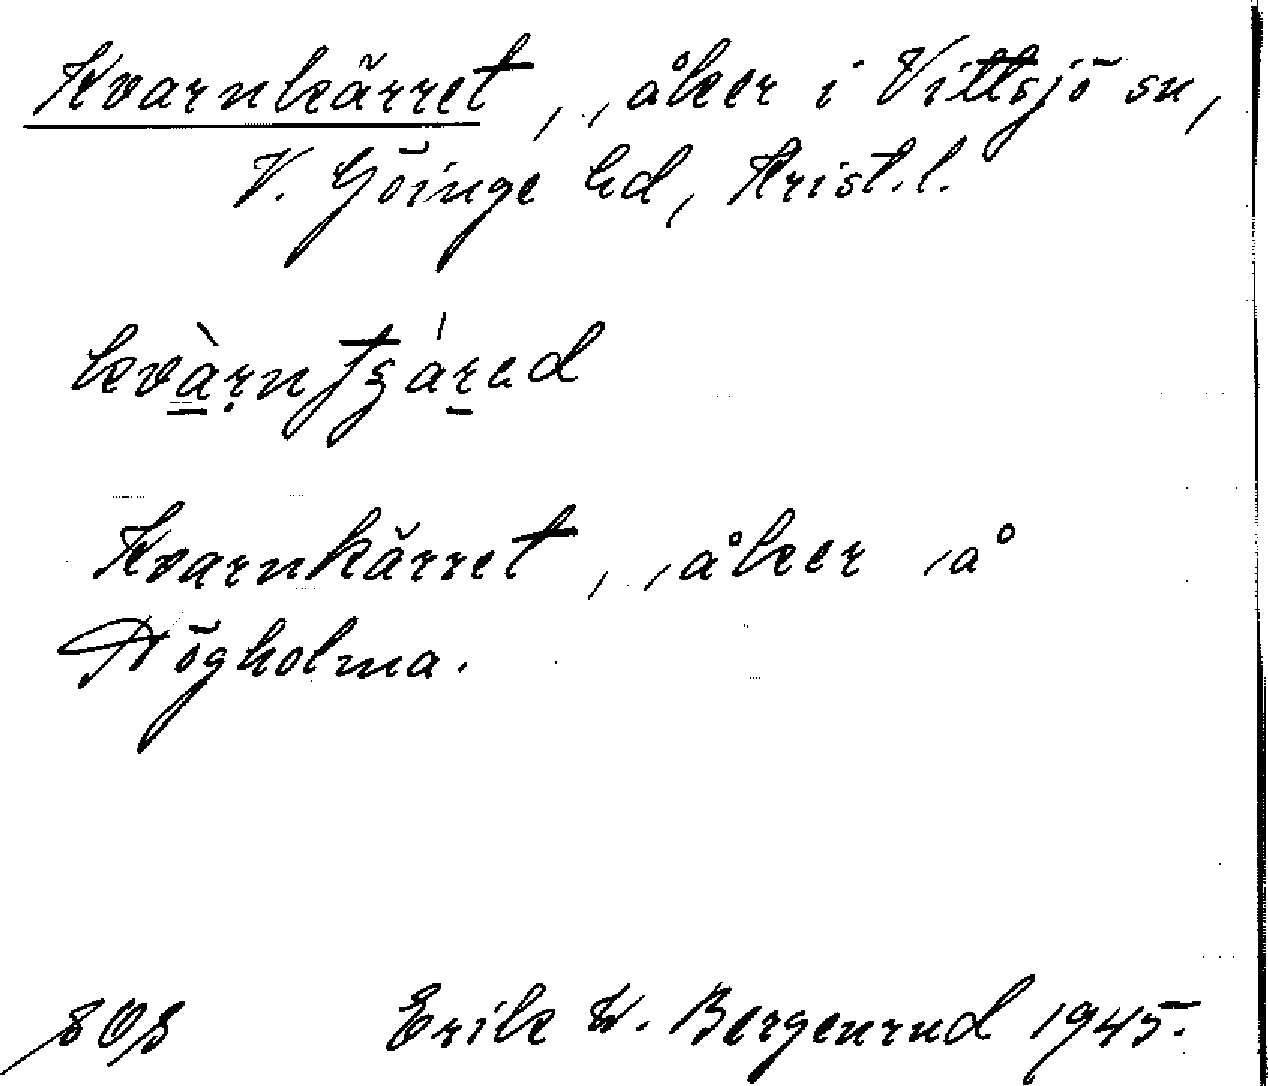 Kvarnkärret, åker i Vittsjö sn,
V. Göinge hd, Krist.l.
Kvarnkärret, åker å
Högholma.
808 Erik W. Bergenrud 1945.